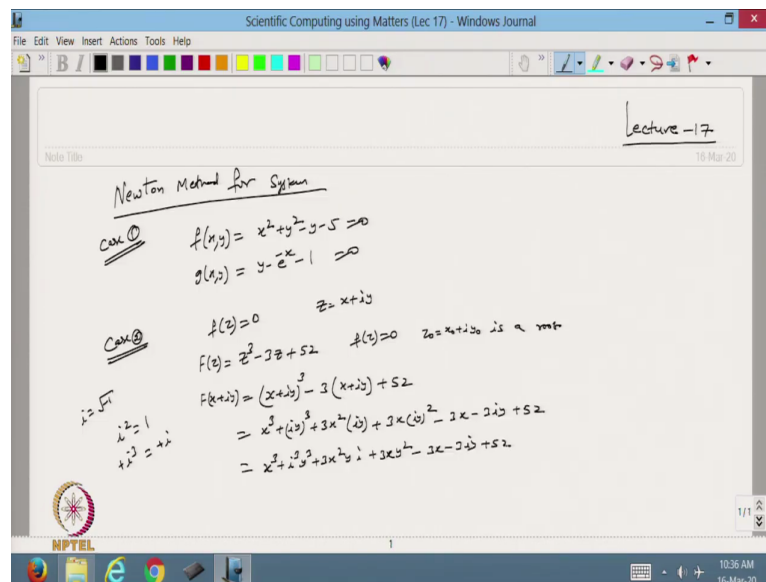 Scientific Computing using Matters (Lec 17) - Windows Journal
File Edit View Insert Actions Tools Help
B I
Lecture-17
Note Title
16-Mar-20
Newton Method for System
Case ① f(x,y) = x²+y²-y-5=0
g(x,y) = y-e^-x-1=0
Case ② f(z)=0 z=x+iy
F(z)=z³-3z+52 f(z)=0 z₀=x₀+iy₀ is a root
F(x+iy)=(x+iy)³-3(x+iy)+52
i=√-1
= x³+(iy)³+3x²(iy)+3x(iy)²-3x-3iy+52
i²=1
= x³+i³y³+3x²yi+3xy²-3x-3iy+52
+i³=+i
1/1
NPTEL
1
10:36 AM
16-Mar-20